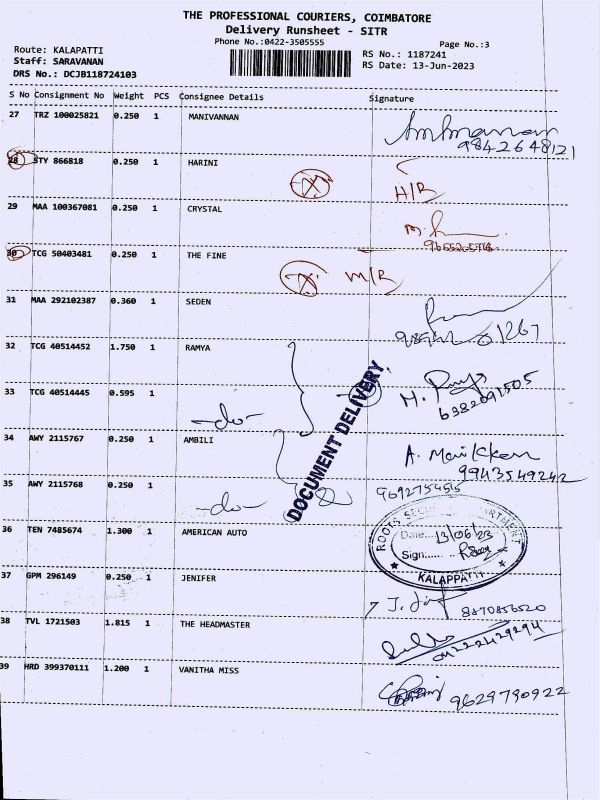 THE PROFESSIONAL COURIERS, COIMBATORE
Delivery Runsheet - SITR
Phone No.:0422-3505555
Page No.:3
Route: KALAPATTI
Staff: SARAVANAN
DRS No.: DCJB118724103
RS No.: 1187241
RS Date: 13-Jun-2023
S No Consignment No Weight PCS Consignee Details Signature
27 TRZ 100025821 0.250 1 MANIVANNAN
9842648121
28 STY 866818 0.250 1 HARINI
H/B
29 MAA 100367081 0.250 1 CRYSTAL
30 TCG 50403481 0.250 1 THE FINE
31 MAA 292102387 0.360 1 SEDEN
32 TCG 40514452 1.750 1 RAMYA
33 TCG 40514445 0.595 1 -do-
6382091505
34 AWY 2115767 0.250 1 AMBILI
9943549242
35 AWY 2115768 0.250 1 -do-
DOCUMENT DELIVERY
36 TEN 7485674 1.300 1 AMERICAN AUTO
ROOTS
Date: 13/06/23
Sign:
KALAPPATTI
37 GPM 296149 0.250 1 JENIFER
8870856520
38 TVL 1721503 1.815 1 THE HEADMASTER
39 HRD 399370111 1.200 1 VANITHA MISS
9629790922